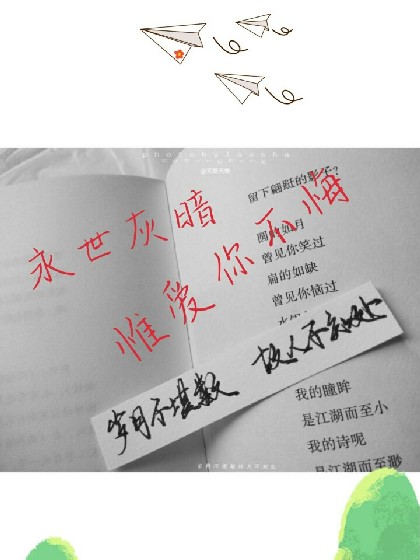 留下翩跹的影子？
圆的如月
曾见你笑过
扁的如缺
曾见你恼过
永世灰暗
惟爱你不悔
岁月不堪数
故人不如初
我的瞳眸
是江湖而至小
我的诗呢
是江湖而至渺